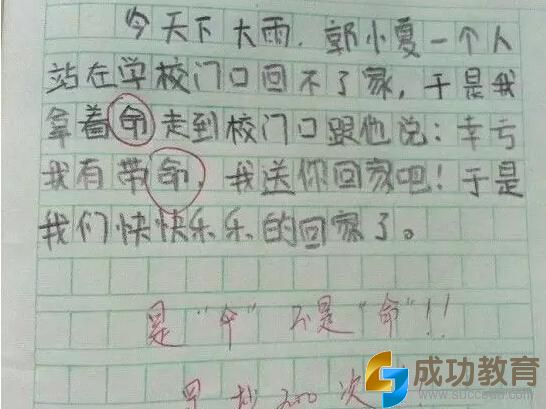 今天下大雨，郭小夏一个人
站在学校门口回不了家，于是我
拿着命走到校门口跟他说：幸亏
我有带命，我送你回家吧！于是
我们快快乐乐的回家了。
是“伞”不是“命”!!
罚抄200次
成功教育
www.succedu.com